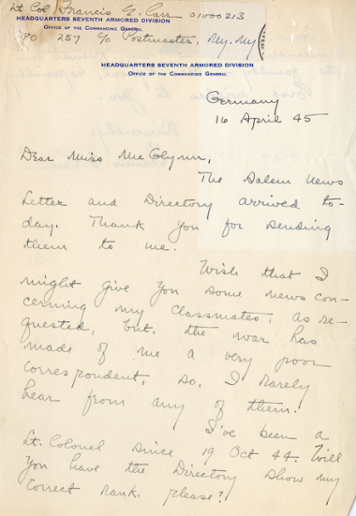 Lt Col Francis E. Carr 01000213
HEADQUARTERS SEVENTH ARMORED DIVISION
OFFICE OF THE COMMANDING GENERAL
APO 257 c/o Postmaster, N.Y. N.Y
HEADQUARTERS SEVENTH ARMORED DIVISION
OFFICE OF THE COMMANDING GENERAL
Germany
16 April 45
Dear Miss McGlynn,
The Salem News
Letter and Directory arrived to-
day. Thank you for sending
them to me.
Wish that I
might give you some news con-
cerning my classmates, as re-
quested, but, the war has
made of me a very poor
correspondent, so, I rarely
hear from any of them.
I've been a
Lt. Colonel since 19 Oct 44. Will
you have the Directory show my
correct rank, please?